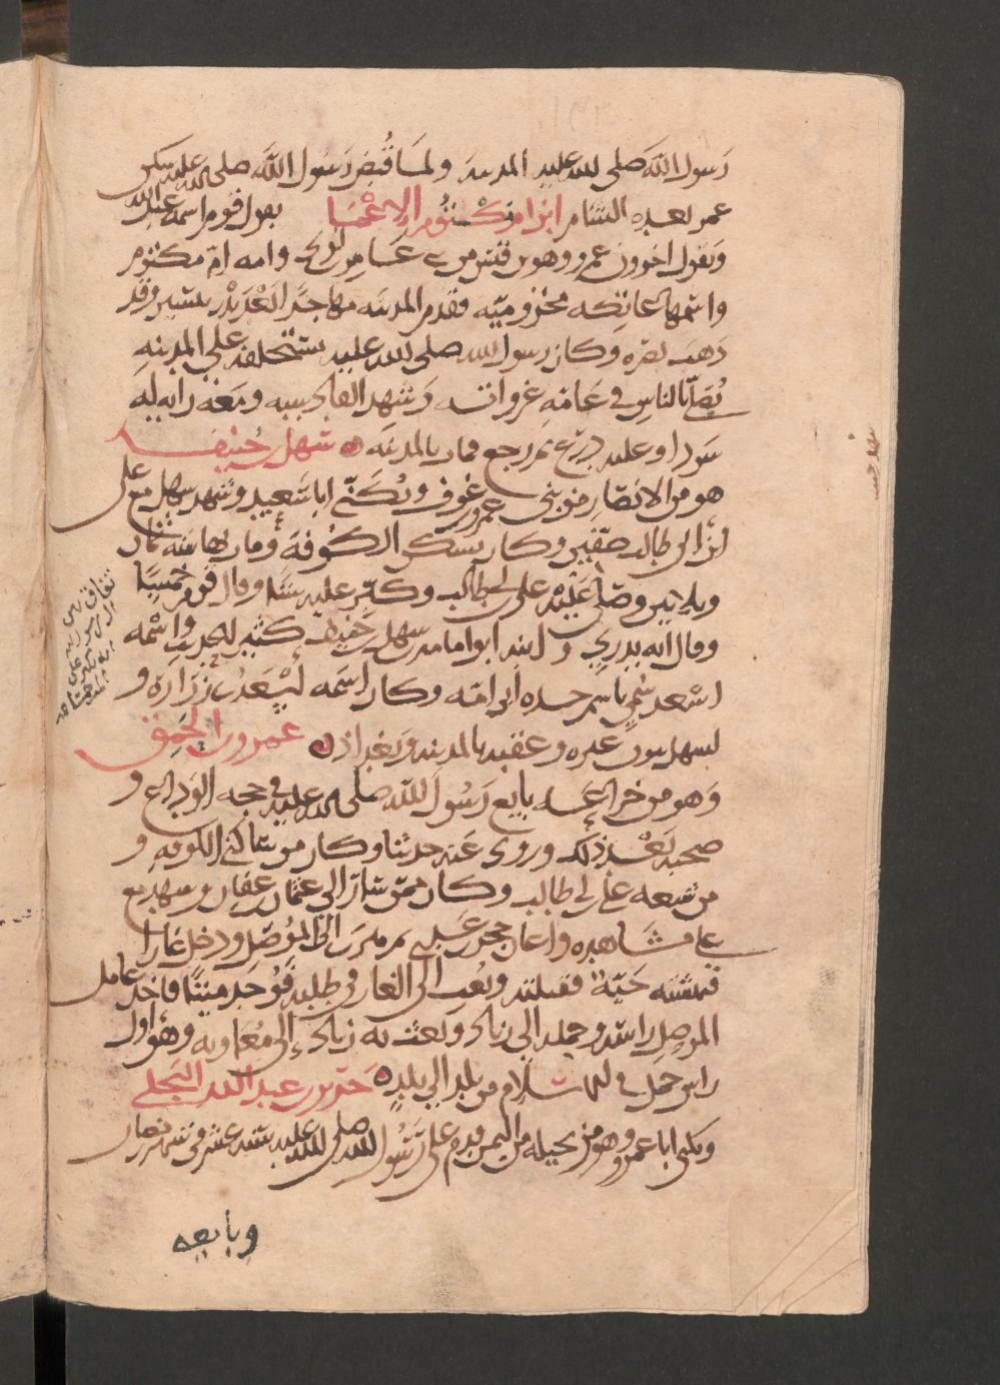 رسول الله صلى الله عليه المدينة ولما قُبض رسول الله صلى الله عليه سكن
عمر بعده الشام ابن ام مكتوم الاعمى يقول قوم اسمه عبد الله
ويقول اخرون عمرو وهو بن قيس من بني عامر بن لوي وامه ام مكتوم
واسمها عاتكه مخزوميّه فقدم المدينه مهاجرًا بَعْد بَدْر بسنتين وقد
ذهب بصره وكان رسول الله صلى الله عليه يستخلفه على المدينهِ
يُصَلّي بالناس في عامّهِ غزواته وشهد القادسيه ومعه رايه له
سودا وعليه درع ثم رجع فمات بالمدينه ه سهل بن حُنيف
هو من الانصار من بني عمرو بن عوف ويُكنّى ابا سَعيد وشهد سهل مع على
ابن ابى طالب صفّين وكان يسكن الكُوفة ومات بها سنه ثمان
وثلاثين وصلّى عَلَيْه على بن ابى طالب وكبّر عليه ستا وقال قوم خمسًا
وقال انه بدري و ابنه ابو امامه بن سهل بن حنيف كثير الحديث واسْمه
اسْعد سُمي باسم جده ابى امّه وكان اسمه اسْعد بن زُرَارة و
لسهل بن حنيف عقب بالمدينه وبغداذ ه عمرو بن الحَمِق
وَهو من خزاعه بايع رَسُول الله صلى الله عليه في حجه الوَداع و
صحبه بَعْد ذلك وروى عَنه حديثا وكان من سَاكني الكوفه و
من شيعه على بن ابى طالب وكان ممّن سَار الى عثمان بن عفان وشهد مع
على مَشَاهده واعان حجر بن عدى ثم هرب الى المُوصل ودخل غارًا
فنهشته حَيّة فقتلته وبُعث الى الغار في طلبه فوُجد ميتًا فاخذ عامل
الموصل راسَه وحمله الى زياد وبعث به زياد الى مُعاويه وهو اول
راس حمل في الاسْلام من بلد الى بلدٍ ه جرير بن عبد الله البَجلي
ويكنى ابا عمرو وهو من بجيله من اليمن قدم على رَسُول الله صلى الله عليه سنه عشر في شهر رمضان
وبايعه